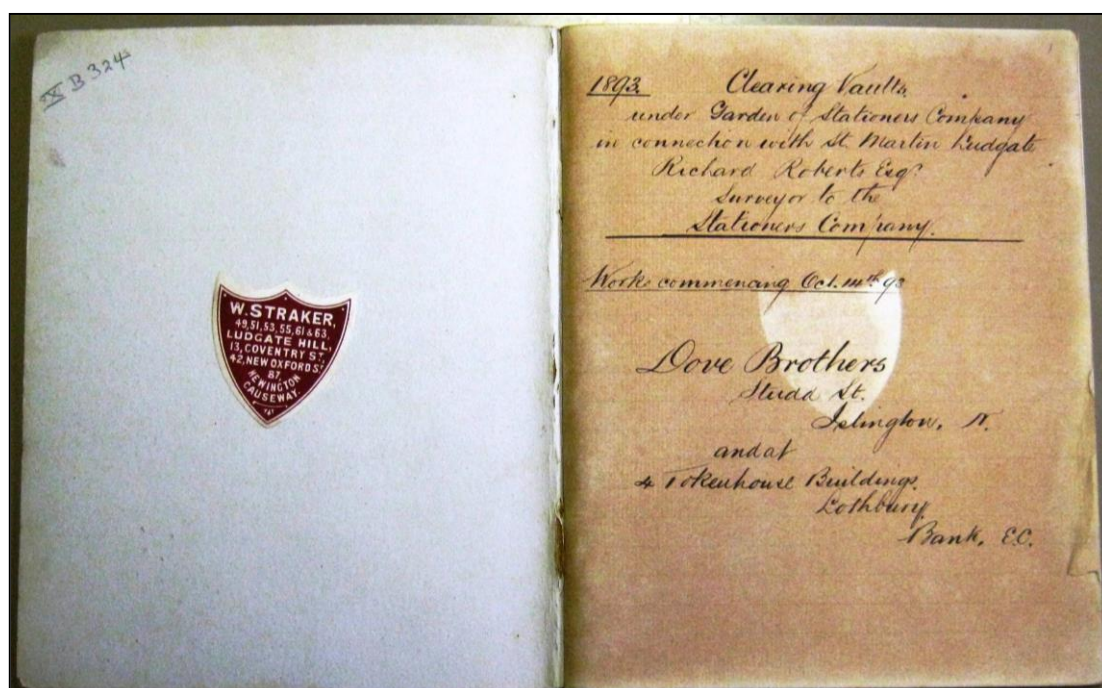 XX B 324
W. STRAKER,
49, 51, 53, 55, 61 & 63,
LUDGATE HILL,
13, COVENTRY ST,
42, NEW OXFORD ST
87,
NEWINGTON
CAUSEWAY.
1893. Clearing Vaults,
under Garden of Stationers Company
in connection with St. Martin Ludgate
Richard Roberts Esqr
Surveyor to the
Stationers Company.
Work commencing Oct. 14th 93
Dove Brothers
Studd St.
Islington, N.
and at
4 Tokenhouse Buildings.
Lothbury
Bank, E.C.